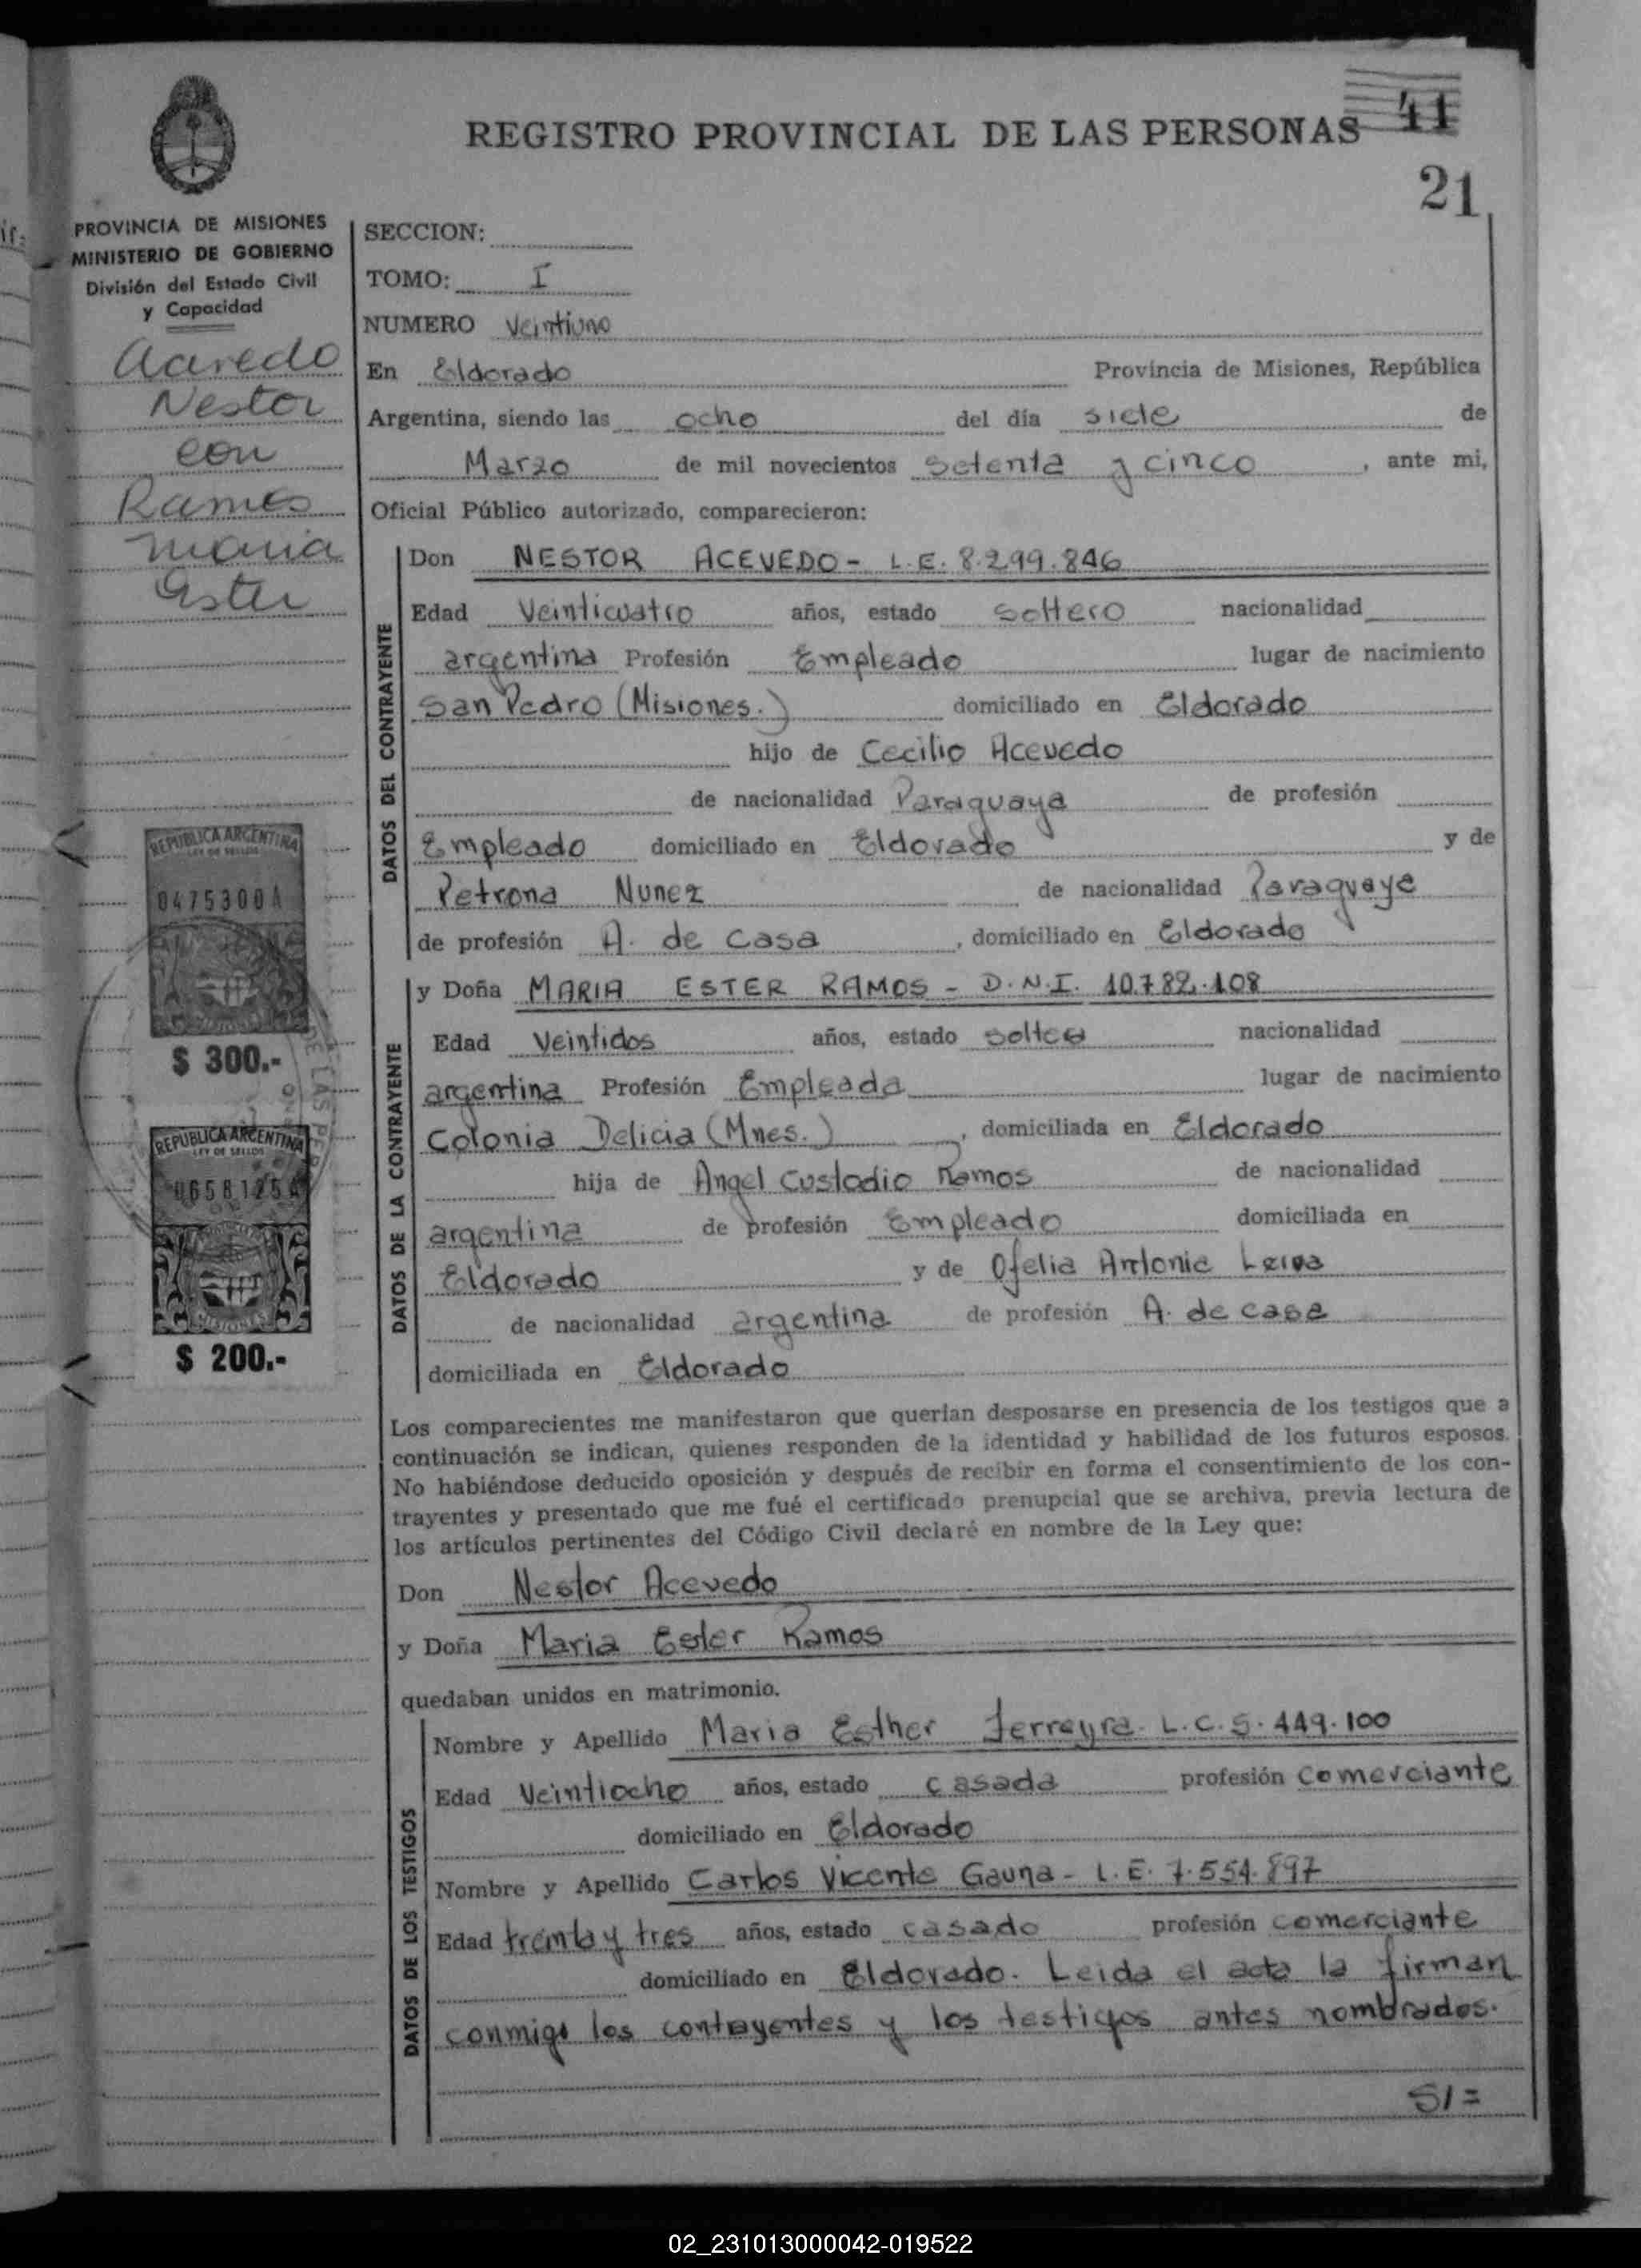 REGISTRO PROVINCIAL DE LAS PERSONAS 41
21
PROVINCIA DE MISIONES
MINISTERIO DE GOBIERNO
División del Estado Civil
y Capacidad
Acevedo
Nestor
con
Ramos
Maria
Ester
REPUBLICA ARGENTINA
LEY DE SELLOS
0475300A
$ 300.-
REPUBLICA ARGENTINA
LEY DE SELLOS
0658125A
MISIONES
$ 200.-
SECCION:
TOMO: I
NUMERO Veintiuno
En Eldorado Provincia de Misiones, República
Argentina, siendo las ocho del día siete de
Marzo de mil novecientos setenta y cinco, ante mi,
Oficial Público autorizado, comparecieron:
DATOS DEL CONTRAYENTE
Don NESTOR ACEVEDO - L.E. 8.299.846
Edad Veinticuatro años, estado soltero nacionalidad
argentina Profesión Empleado lugar de nacimiento
San Pedro (Misiones.) domiciliado en Eldorado
hijo de Cecilio Acevedo
de nacionalidad Paraguaya de profesión
Empleado domiciliado en Eldorado y de
Petrona Nunez de nacionalidad Paraguaya
de profesión A. de casa, domiciliado en Eldorado
DATOS DE LA CONTRAYENTE
y Doña MARIA ESTER RAMOS - D.N.I. 10.782.108
Edad Veintidos años, estado soltera nacionalidad
argentina Profesión Empleada lugar de nacimiento
Colonia Delicia (Mnes.), domiciliada en Eldorado
hija de Angel Custodio Ramos de nacionalidad
argentina de profesión Empleado domiciliada en
Eldorado y de Ofelia Antonia Leiva
de nacionalidad argentina de profesión A. de casa
domiciliada en Eldorado
Los comparecientes me manifestaron que querían desposarse en presencia de los testigos que a
continuación se indican, quienes responden de la identidad y habilidad de los futuros esposos.
No habiéndose deducido oposición y después de recibir en forma el consentimiento de los con-
trayentes y presentado que me fué el certificado prenupcial que se archiva, previa lectura de
los artículos pertinentes del Código Civil declaré en nombre de la Ley que:
Don Nestor Acevedo
y Doña Maria Ester Ramos
quedaban unidos en matrimonio.
DATOS DE LOS TESTIGOS
Nombre y Apellido Maria Esther Ferreyra. L.C. 5.449.100
Edad Veintiocho años, estado casada profesión comerciante
domiciliado en Eldorado
Nombre y Apellido Carlos Vicente Gauna - L.E. 7.554.897
Edad treinta y tres años, estado casado profesión comerciante
domiciliado en Eldorado. Leida el acta la firman
conmigo los contrayentes y los testigos antes nombrados.
S/=
02_231013000042-019522